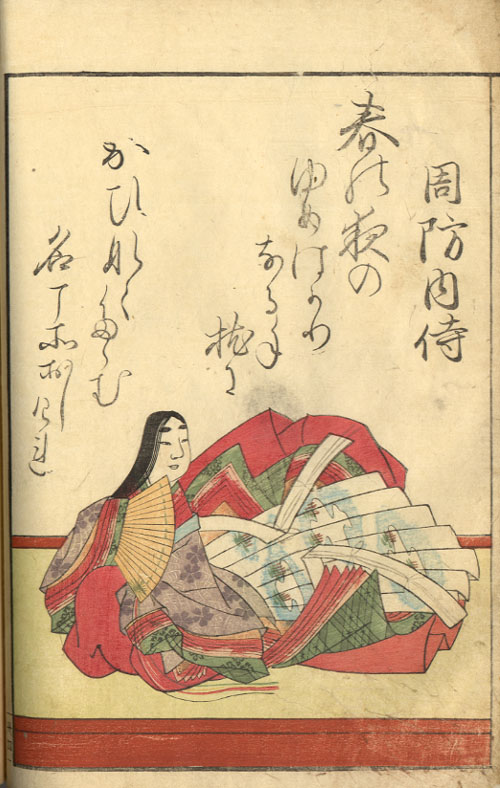 周防内侍
春の夜の
ゆめはかり
なる手
枕に
かひなくたゝむ
名こそおしけれ